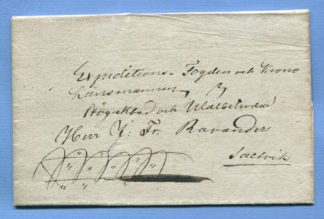 Expeditions-Fogden och Krono
Länsmannen
Högaktad och Wälbetrodde
Herr J: Fr: Ravander
Saltvik